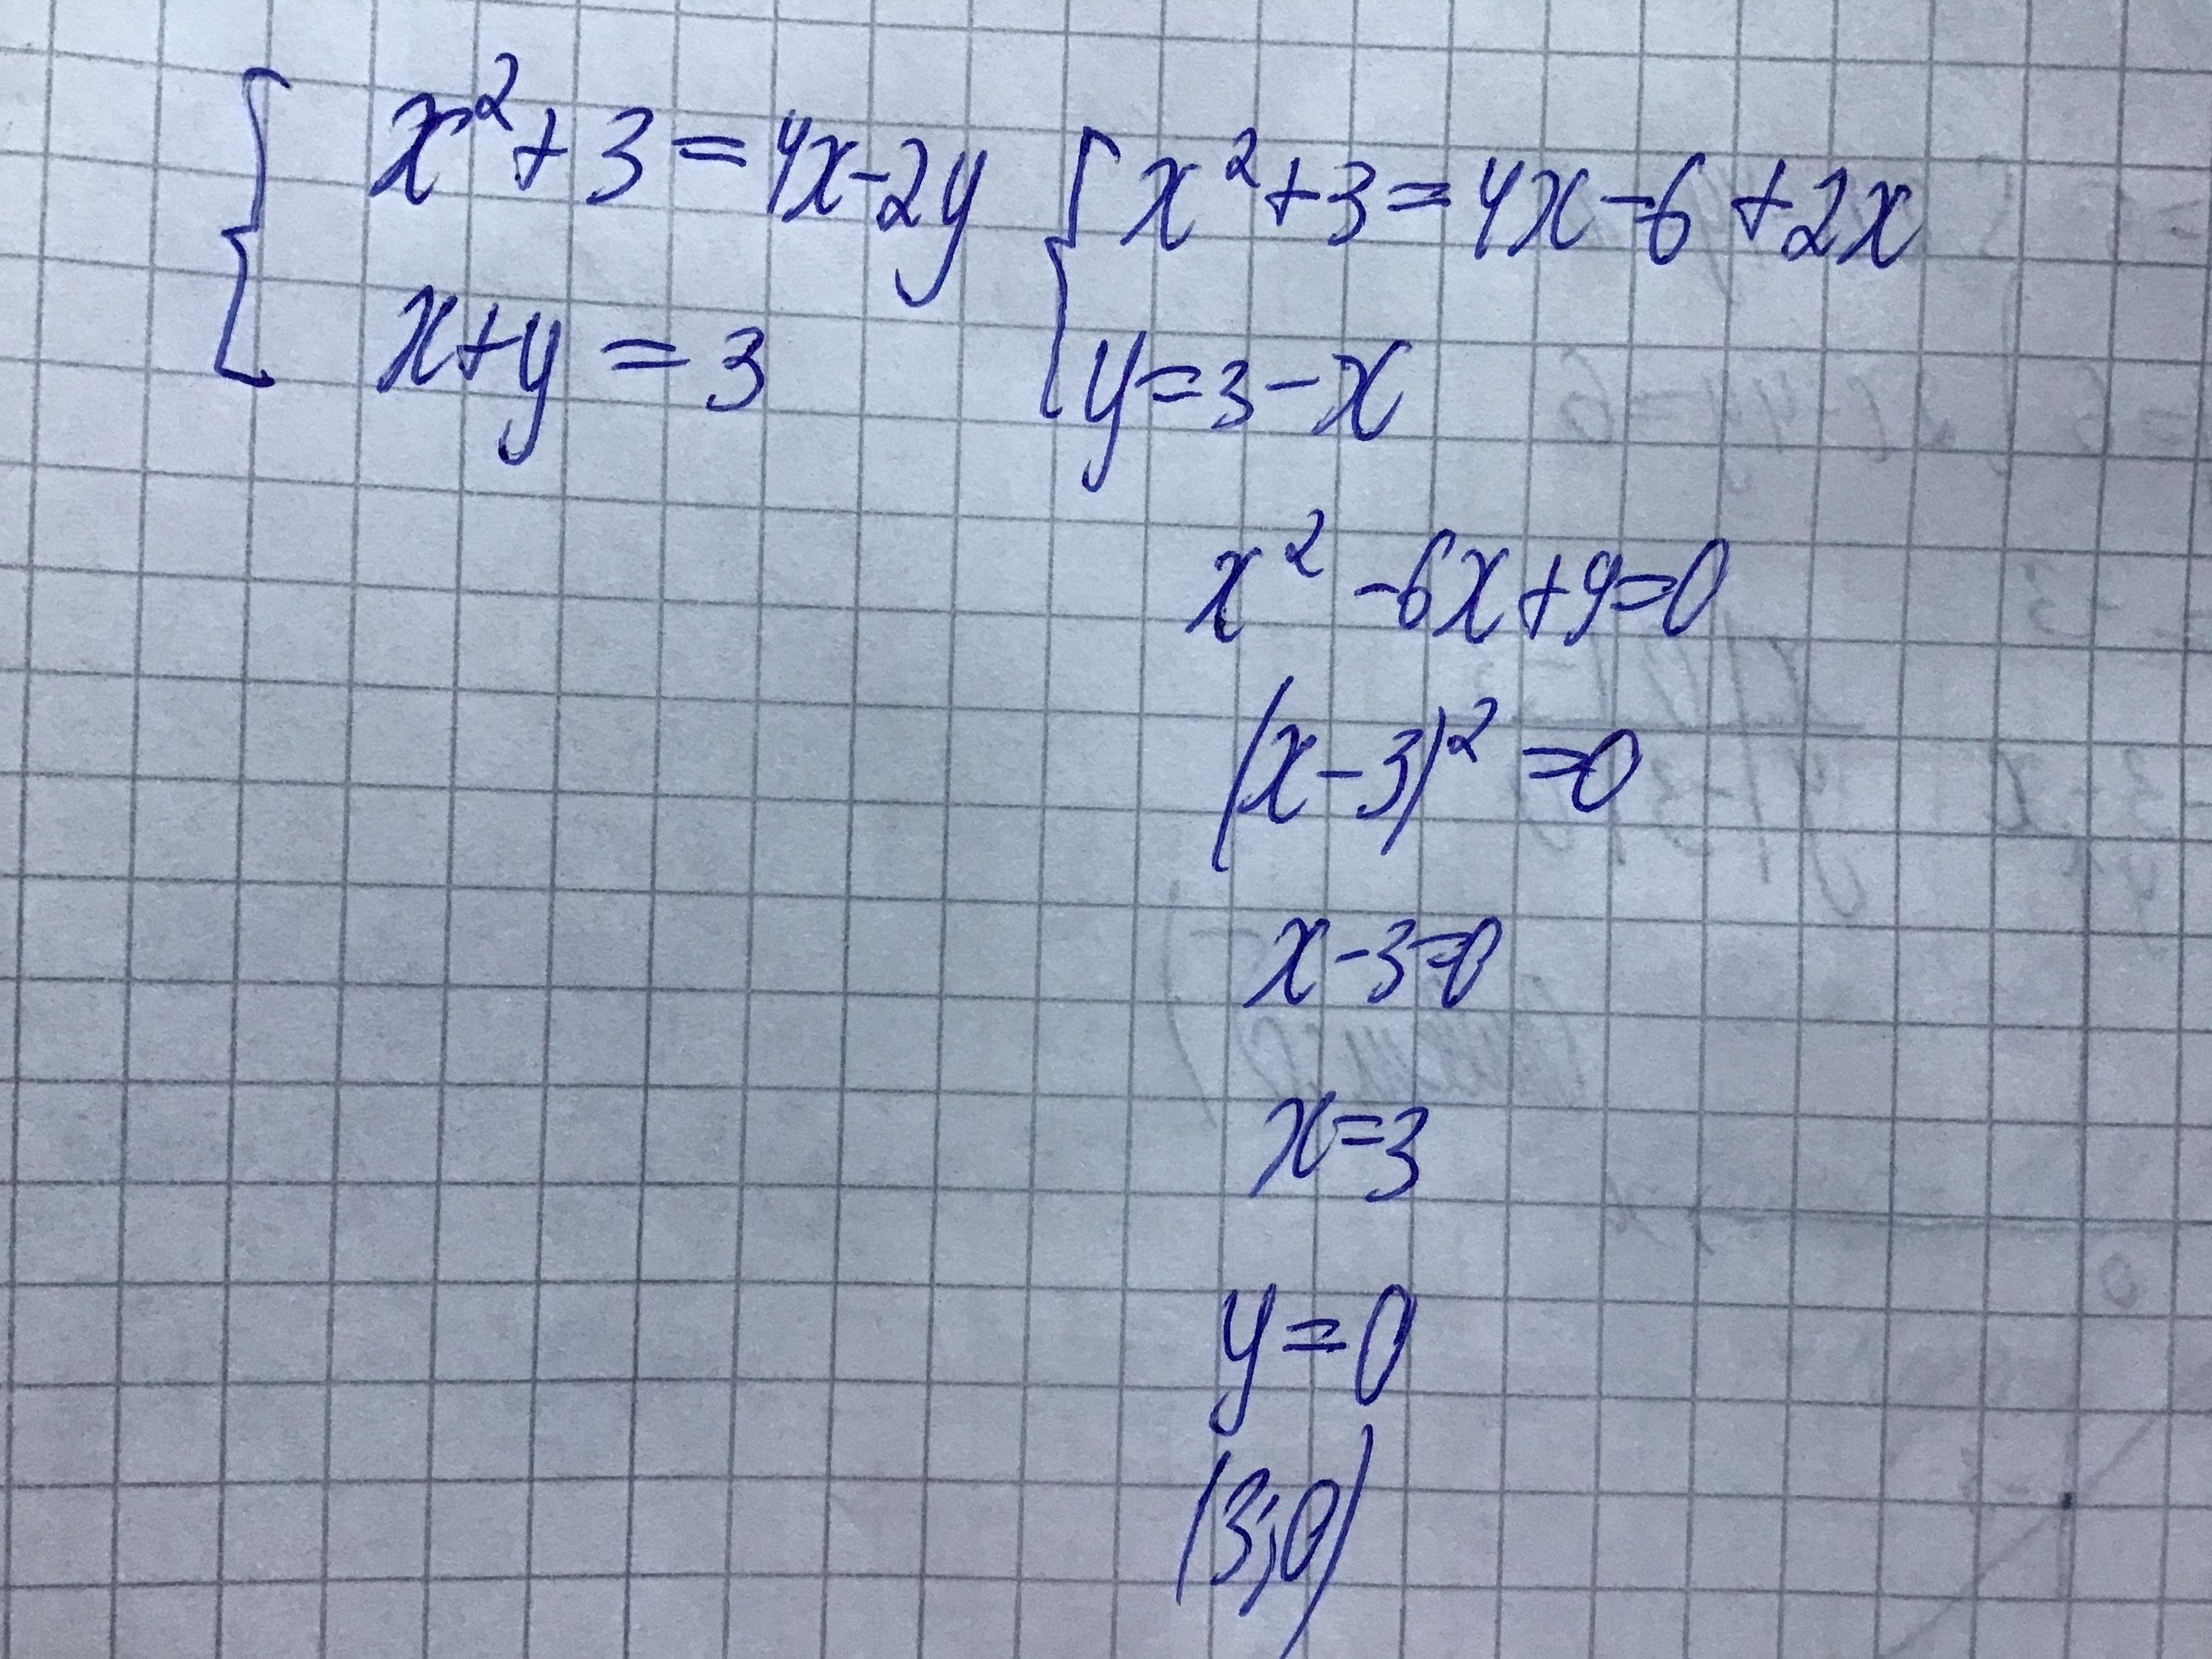 x² + 3 = 4x - 2y
x + y = 3
x² + 3 = 4x - 6 + 2x
y = 3 - x
x² - 6x + 9 = 0
(x - 3)² = 0
x - 3 = 0
x = 3
y = 0
(3; 0)